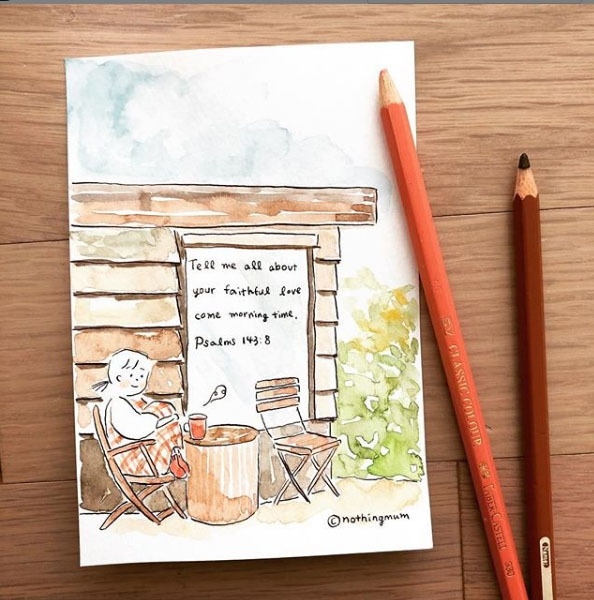 Tell me all about
your faithful love
come morning time.
Psalms 143:8
©nothingmum
CLASSIC COLOUR
FABER-CASTELL